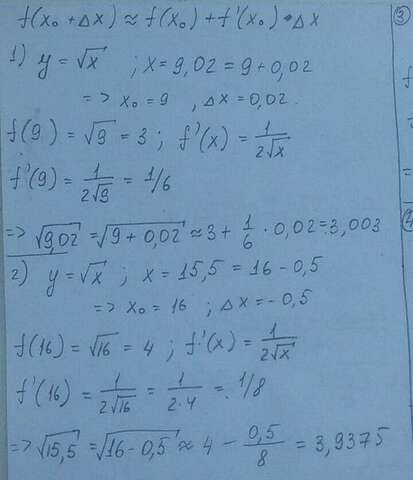 f(x₀ + Δx) ≈ f(x₀) + f'(x₀) · Δx
1) y = √x ; x = 9,02 = 9 + 0,02
=> x₀ = 9 , Δx = 0,02
f(9) = √9 = 3 ; f'(x) = 1/(2√x)
f'(9) = 1/(2√9) = 1/6
=> √9,02 = √(9 + 0,02) ≈ 3 + 1/6 · 0,02 = 3,003
2) y = √x ; x = 15,5 = 16 - 0,5
=> x₀ = 16 ; Δx = - 0,5
f(16) = √16 = 4 ; f'(x) = 1/(2√x)
f'(16) = 1/(2√16) = 1/(2·4) = 1/8
=> √15,5 = √(16 - 0,5) ≈ 4 - 0,5/8 = 3,9375
3
4